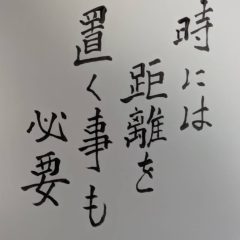 時には
距離を
置く事も
必要